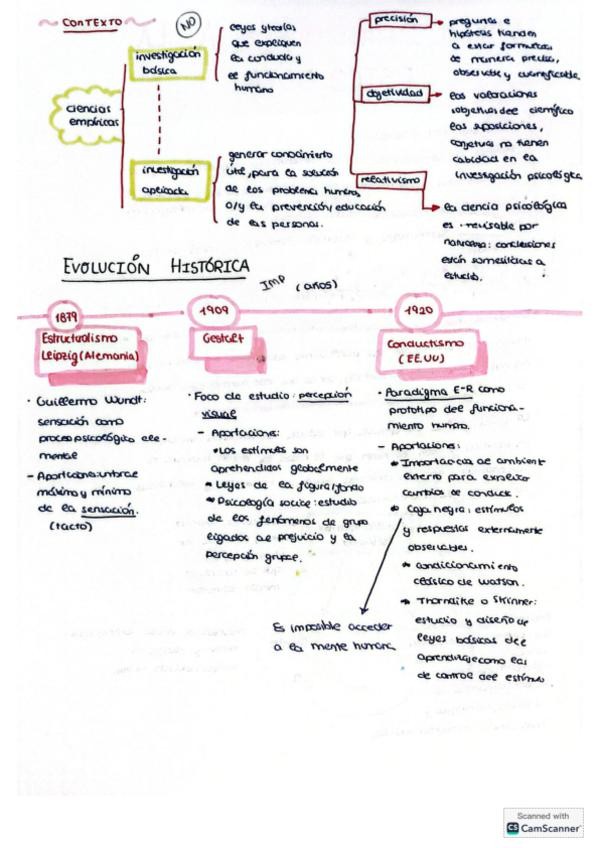 CONTEXTO
NO
ciencias
empíricas
investigación
básica
leyes y teorías
que expliquen
la conducta y
el funcionamiento
humano
investigación
aplicada
generar conocimiento
útil, para la solución
de los problema humanos
o/y la prevención/educación
de las personas.
precisión
preguntas e
hipótesis tienden
a estar formuladas
de manera precisa,
observable y cuantificable.
objetividad
las valoraciones
subjetivas del científico
las suposiciones,
conjeturas no tienen
cabida en la
investigación psicológica
relativismo
la ciencia psicológica
es revisable por
naturaleza: conclusiones
están sometidas a
estudio.
EVOLUCIÓN HISTÓRICA
IMP (años)
1879
Estructuralismo
Leipzig (Alemania)
· Guillermo Wundt:
sensación como
proceso psicológico ele-
mental
- Aportación: umbral
máximo y mínimo
de la sensación.
(tacto)
1909
Gestalt
· Foco de estudio: percepción
visual
- Aportaciones:
Los estímulos son
aprehendidos globalmente
Leyes de la figura/fondo
Psicología social: estudio
de los fenómenos de grupo
ligados al prejuicio y la
percepción grupal.
1920
Conductismo
(EE.UU)
· Paradigma E-R como
prototipo del funciona-
miento humano.
- Aportaciones:
Importancia al ambiente
externo para explicar
cambios de conducta.
Caja negra: estímulos
y respuestas externamente
observables.
condicionamiento
clásico de Watson.
Thorndike o Skinner:
estudio y diseño de
leyes básicas del
aprendizaje como las
de control del estímulo
Es imposible acceder
a la mente humana
Scanned with
CS CamScanner